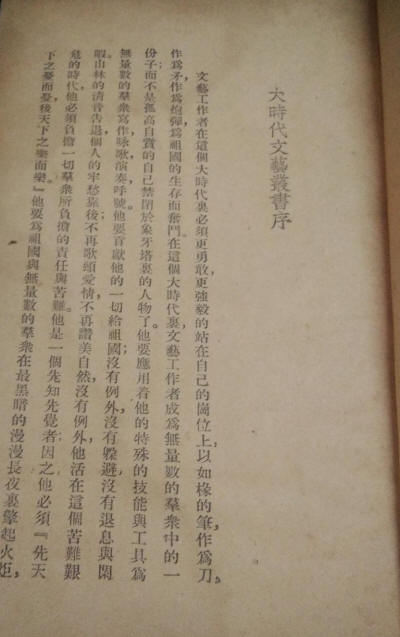 大時代文藝叢書序
文藝工作者在這個大時代裏必須更勇敢，更強毅的站在自己的崗位上，以如椽的筆，作爲刀，
作爲矛，作爲炮彈，爲祖國的生存而奮鬥。在這個大時代裏，文藝工作者成爲無量數的羣衆中的一
份子，而不是孤高自賞的自己禁閉於象牙塔裏的人物了。他要應用着他的特殊的技能與工具爲
無量數的羣衆寫作，咏歌，演奏，呼號。他要貢獻他的一切給祖國，沒有例外，沒有躱避，沒有退息與閑
暇。山林的清音告退，個人的牢愁靠後；不再歌頌愛情，不再讚美自然，沒有例外，他活在這個苦難艱
危的時代，他必須負擔一切羣衆所負擔的責任與苦難。他是一個先知先覺者；因之他必須『先天
下之憂而憂，後天下之樂而樂。』他要爲祖國與無量數的羣衆在最黑暗的漫漫長夜裏擎起火炬，